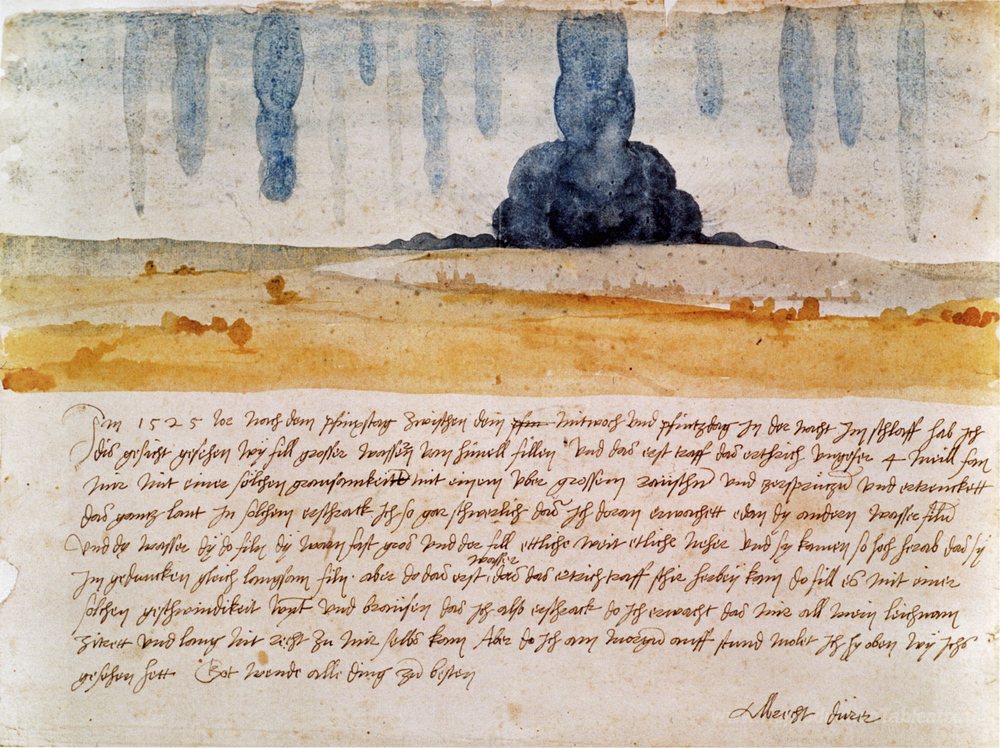 Im 1525 Jor noch dem pfinxstag zwischen dem pfin Mitwoch und pfintzdag in der nacht im schlaff hab ich
dis gesicht gesehen wy fill grosser wassern vom himell fillen Und das erst traff das erthrich ungefer 4 meill fan
mir mit einer solchen grausamkeitt mit einem uber grossem raüschn und zersprützn und ertrenckett
das gantz lant In solchem erschrack ich so gar schwerlich das ich doran erwachett edan dy andern wasser filn
Und dy wasser dy do filn dy warn fast gros und der fill ettliche weit etliche neher und sy kamen so hoch herab das sy
im gedancken gleich langsam filn. aber do das erst wasser das das ertrich traff schir herbey kam do fill es mit einer
solchen geschwindikeit wynt und braüsen das ich also erschrack do ich erwacht das mir all mein leichnam
zitrett und lang nit recht zu mir selbs kam Aber do ich am morgn auff stund molet ich hy oben wy ichs
gesehen hett Got wende alle ding zu besten
Albrecht dürer